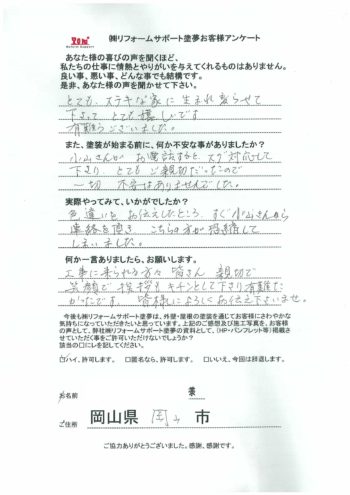 ㈱リフォームサポート塗夢お客様アンケート
あなた様の喜びの声を聞くほど、
私たちの仕事に情熱とやりがいを与えてくれるものはありません。
良い事、悪い事、どんな事でも結構です。
是非、あなた様の声を聞かせて下さい。
とても、ステキな家に生まれ変らせて
下さって とても嬉しいです
有難うございました。
また、塗装が始まる前に、何か不安な事がありましたか?
小山さんが お電話すると スグ対応して
下さり、とてもご親切だったので
一切 不安はありませんでした。
実際やってみて、いかがでしたか?
色違いを お伝えしたところ、すぐ小山さんから
連絡を頂き こちらの方が恐縮して
しまいました。
何か一言ありましたら、お願いします。
工事に来られる方々 皆さん 親切で
笑顔で 挨拶も キチンとして下さり有難た
かったです。 皆様によろしくお伝え下さいませ。
今後も㈱リフォームサポート塗夢は、外壁・屋根の塗装を通じてお客様にさわやかな
気持ちになっていただきたいと思っています。上記のご感想及び施工写真を、お客様
の声として、弊社㈱リフォームサポート塗夢の資料として、(HP・パンフレット等)掲載さ
せていただく事をご許可いただけないでしょうか?
該当の口にレを記してください。
□はい、許可します。 □匿名なら、許可します。 □いいえ、今回は辞退します。
お名前 様
ご住所 岡山県 岡山 市
ご協力ありがとうございました。感謝、感謝です。